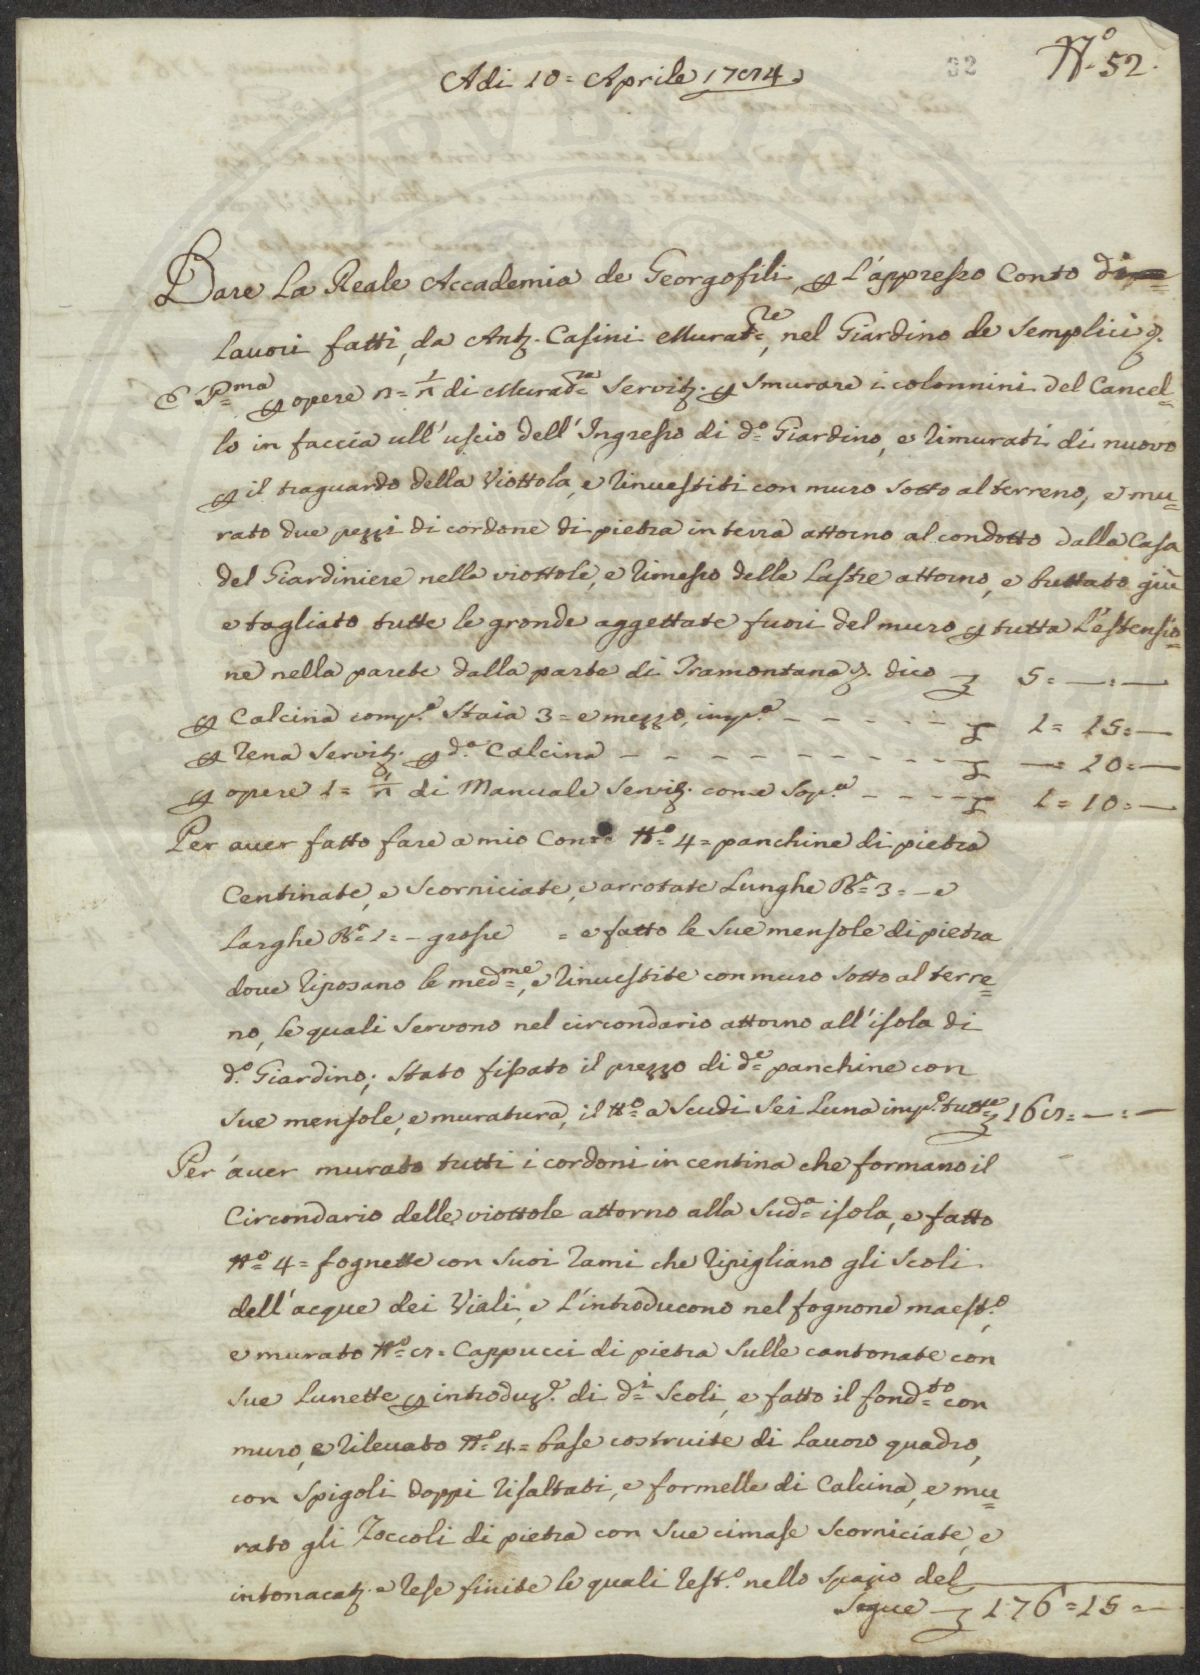 32
N.º 52.
Adi 10 = Aprile 1794.
Dare La Reale Accademia de Georgofili, p L'appresso Conto di
lauori fatti, da Ant. Casini Murat.re, nel Giardino de Semplici p.
E P.ma p opere n = 1/2 di Murad.re Servit. p Smurare i colonnini del Cancel=
lo in faccia all'uscio dell'Ingresso di d.º Giardino, e rimurati di nuovo
p il traguardo della Viottola, e rinuestiti con muro sotto al terreno, e mu=
rato due pezzi di cordone di pietra in terra attorno al condotto dalla Casa
del Giardiniere nelle viottole, e rimesso delle Lastre attorno, e buttato giù
e tagliato tutte le gronde aggettate fuori del muro p tutta L'estensio=
ne nella parete dalla parte di Tramontana p. dico 5 = — = —
p Calcina comp.ª Staia 3 = e mezzo, imp.ª - - - - - - 1 = 15 = —
p rena Servit. p d.ª Calcina - - - - - - - - - — = 10 = —
p opere 1 = 1/2 di Manuale Servit. come Sop.ª - - - - 1 = 10 = —
Per auer fatto fare a mio Conto N.º 4 = panchine di pietra
Centinate, e Scorniciate, e arrotate Lunghe B.ª 3 = - e
Larghe B.ª 1 = - grosse = e fatto le Sue mensole di pietra
doue riposano le med.me, e rinuestite con muro sotto al terre=
no, le quali Servono nel circondario attorno all'isola di
d.º Giardino; Stato fissato il prezzo di d.e panchine con
Sue mensole, e muratura, il N.º a Scudi Sei L'una imp.º tutte 168 = — = —
Per auer murato tutti i cordoni in centina che formano il
Circondario delle viottole attorno alla Sud.ª isola, e fatto
N.º 4 = fognette con Suoi rami che ripigliano gli Scoli
dell'acque dei Viali, e L'introducono nel fognone maest.º,
e murato N.º 8 = Cappucci di pietra Sulle cantonate con
Sue Lunette p introduz.e di d.i Scoli, e fatto il fond.to con
muro, e rileuato N.º 4 = base costruite di Lauoro quadro,
con Spigoli doppi risaltati, e formelle di Calcina, e mu=
rato gli Zoccoli di pietra con Sue cimase Scorniciate, e
intonacat. e rese finite le quali rest.º nello Spazio del
Segue 176 = 15 = —